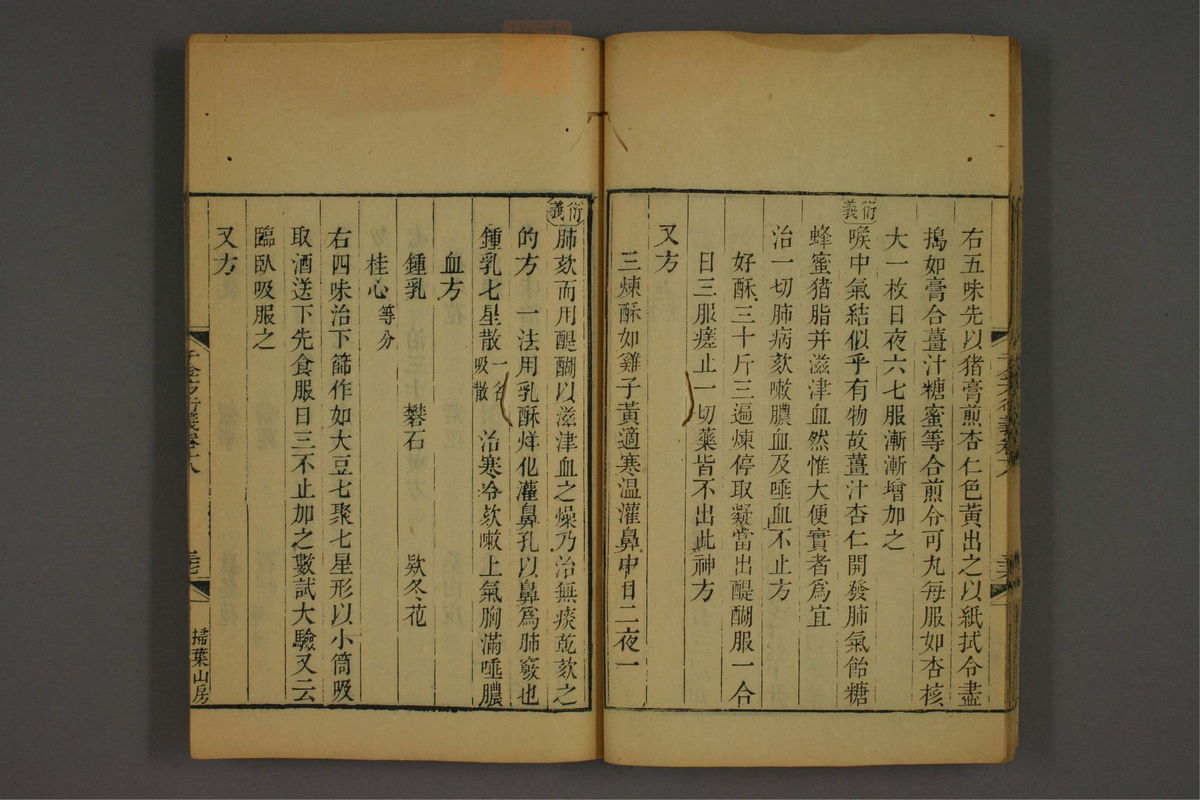 右五味先以猪膏煎杏仁色黃出之以紙拭令盡
搗如膏合薑汁糖蜜等合煎令可丸每服如杏核
大一枚日夜六七服漸漸增加之
衍義
喉中氣結似乎有物故薑汁杏仁開發肺氣飴糖
蜂蜜猪脂并滋津血然惟大便實者爲宜
治一切肺病欬嗽膿血及唾血不止方
好酥三十斤三遍煉停取凝當出醍醐服一合
日三服瘥止一切藥皆不出此神方
又方
三煉酥如雞子黃適寒温灌鼻中日二夜一
衍義
肺欬而用醍醐以滋津血之燥乃治無痰乾欬之
的方一法用乳酥烊化灌鼻孔以鼻爲肺竅也
鍾乳七星散一名吸散治寒冷欬嗽上氣胸滿唾膿
血方
鍾乳 礬石 欵冬花
桂心等分
右四味治下篩作如大豆七聚七星形以小筒吸
取酒送下先食服日三不止加之數試大驗又云
臨臥吸服之
又方
掃葉山房